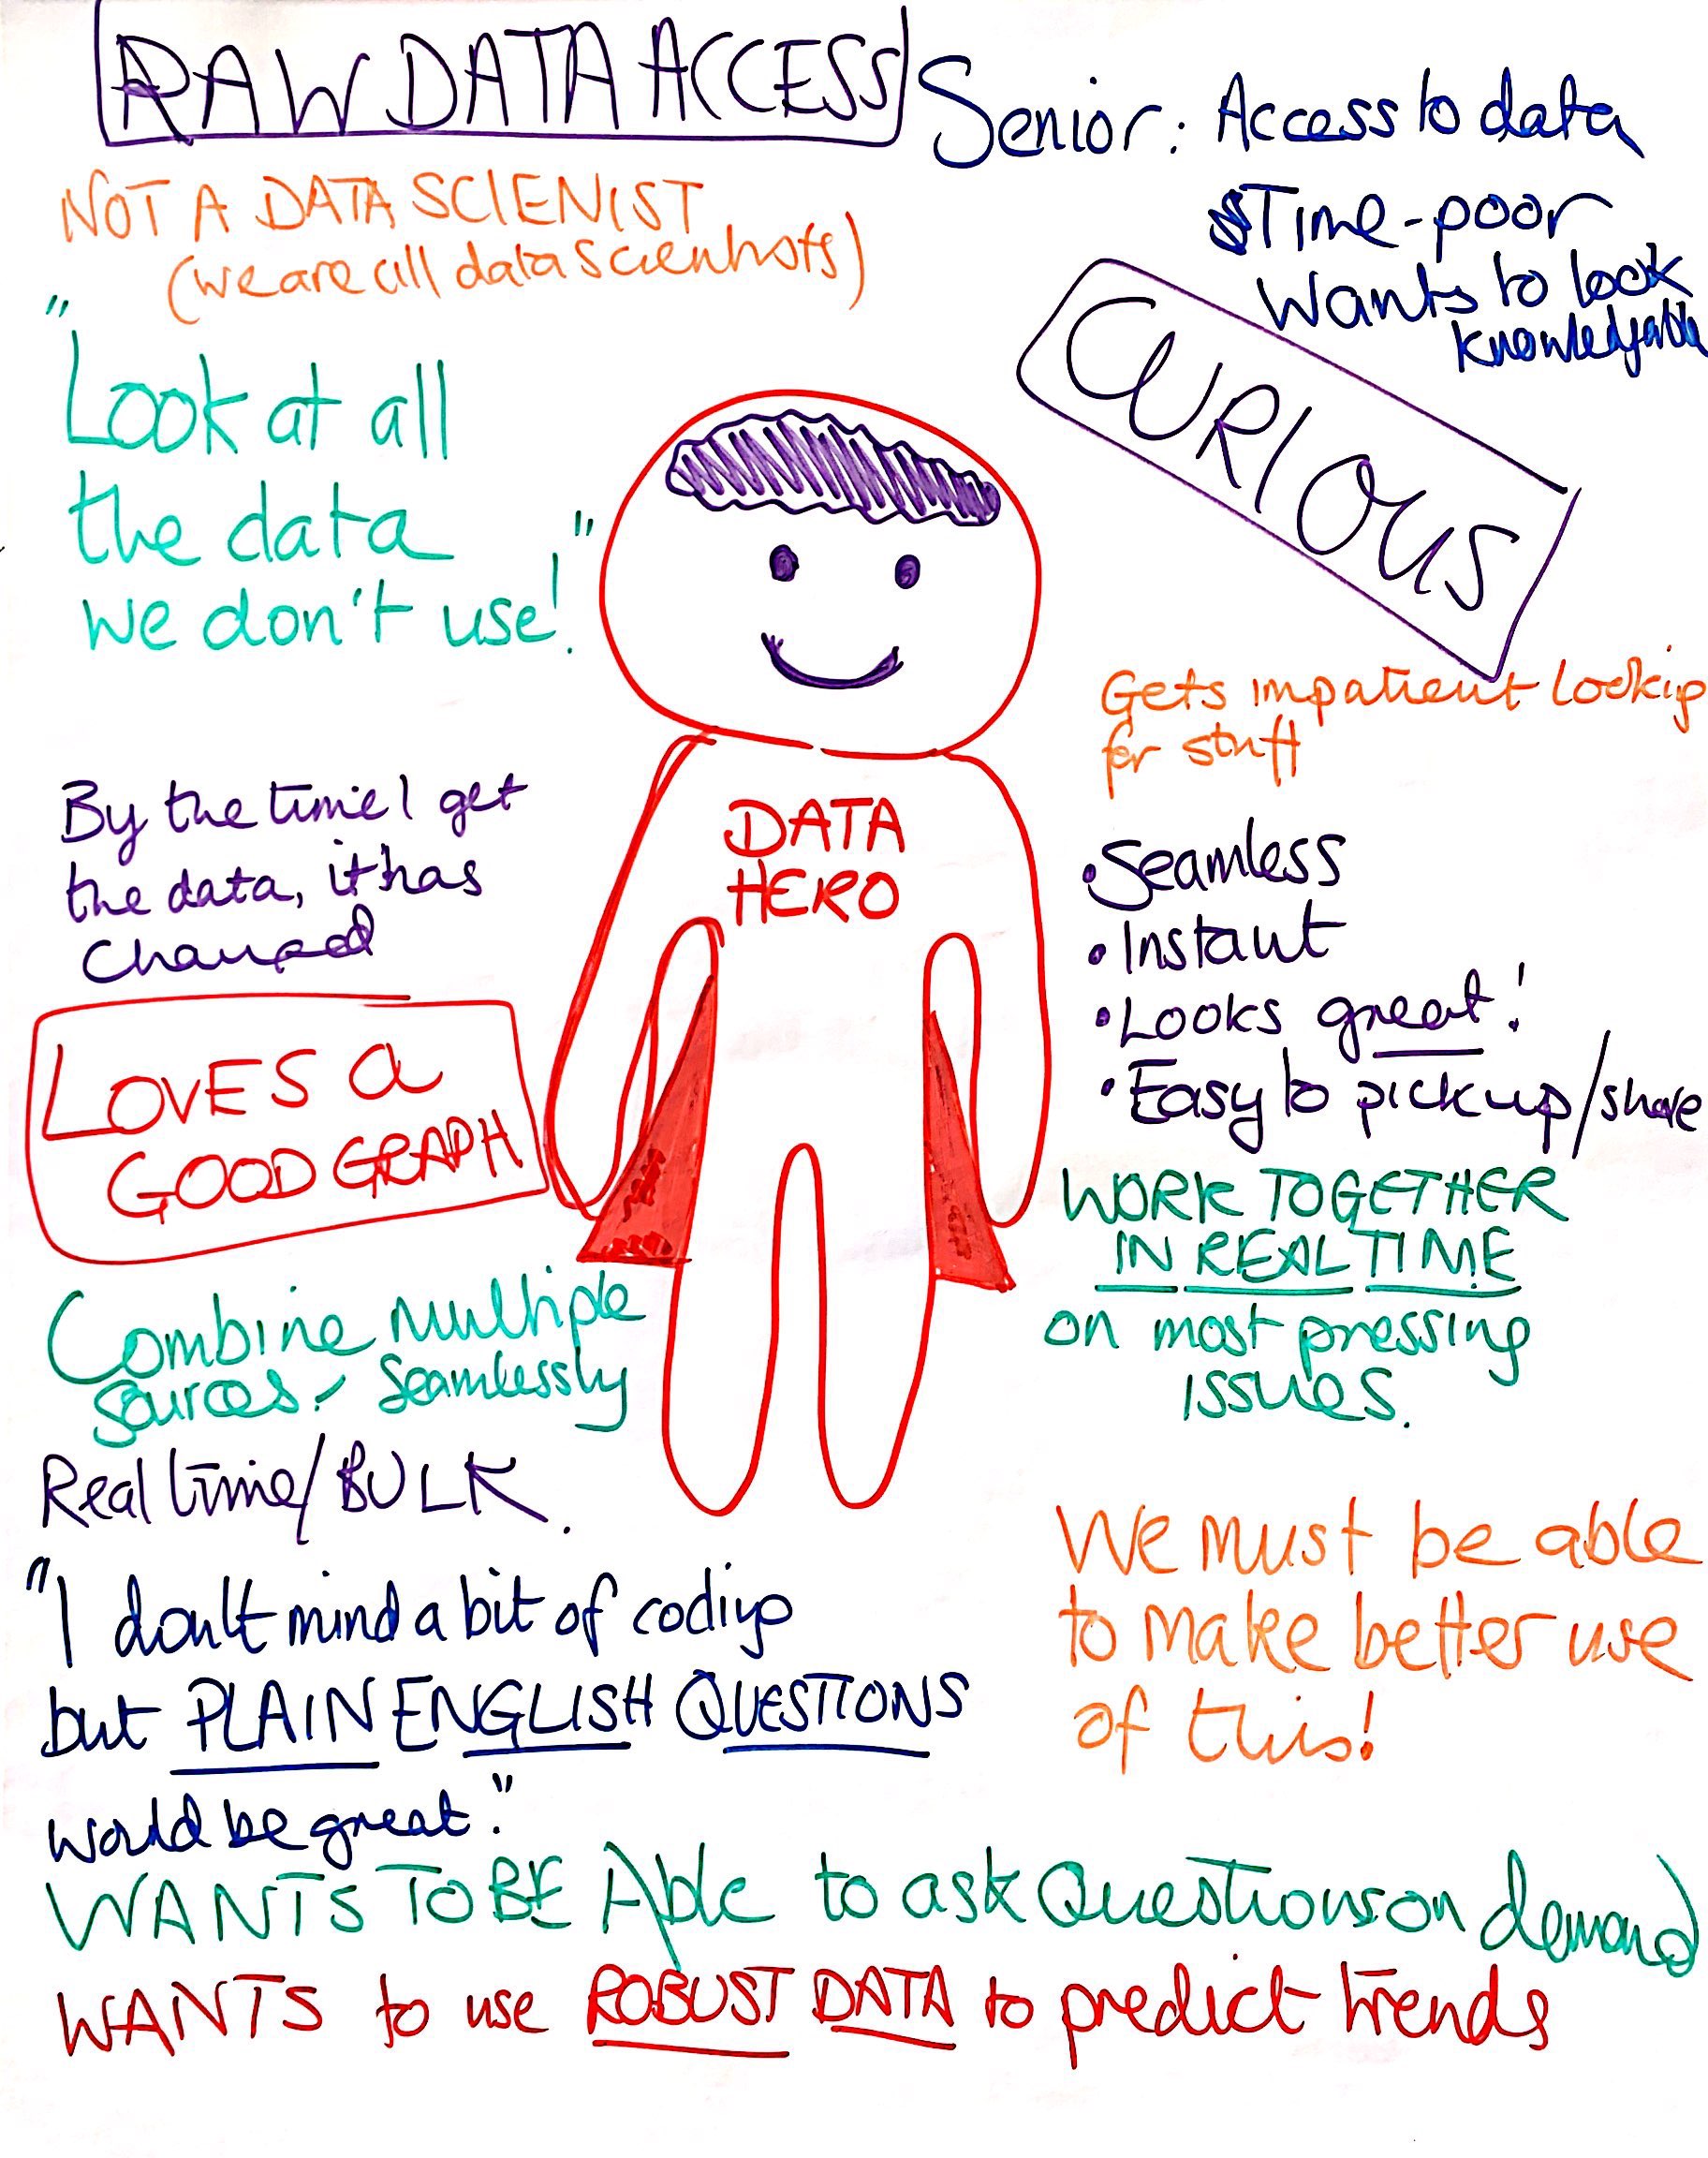 RAW DATA ACCESS
Senior: Access to data
Time-poor
Wants to look
knowledgable
NOT A DATA SCIENIST
(we are all data scientists)
CURIOUS
"Look at all
the data
we don't use!"
Gets impatient looking
for stuff
By the time I get
the data, it has
changed
DATA
HERO
• Seamless
• Instant
• Looks great!
• Easy to pick up/share
LOVES a
GOOD GRAPH
WORK TOGETHER
IN REAL TIME
on most pressing
issues.
Combine multiple
sources, seamlessly
Real time/BULK.
We must be able
to make better use
of this!
"I don't mind a bit of coding
but PLAIN ENGLISH QUESTIONS
would be great."
WANTS TO BE Able to ask Questions on demand
WANTS to use ROBUST DATA to predict trends